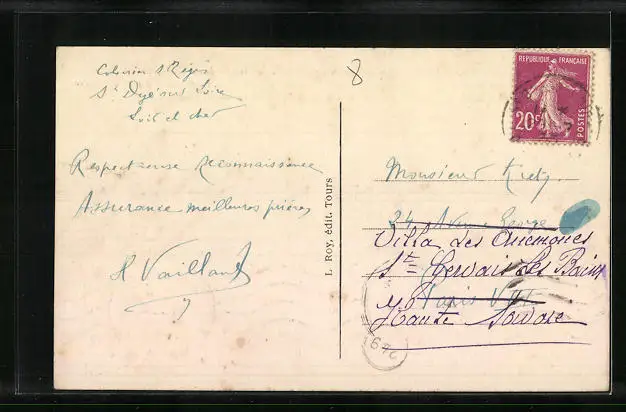 8
St Dyé sur Loire
Loir et cher
Respectueuse reconnaissance
Assurance meilleures prières
Vaillant
L. Roy, édit. Tours
REPUBLIQUE FRANÇAISE
20c
POSTES
Monsieur
24 Avenue George
Villa Les Anemones
St Gervais Les Bains
Paris VIII
Haute Savoie